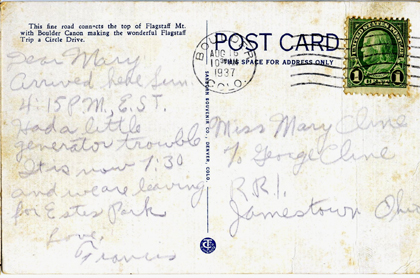 This fine road connects the top of Flagstaff Mt.
with Boulder Canon making the wonderful Flagstaff
Trip a Circle Drive.
POST CARD
THIS SPACE FOR ADDRESS ONLY
BOULDER
AUG 16
10 AM
1937
COLO.
1 1
SANBORN SOUVENIR CO., DENVER, COLO.
Dear Mary
Arrived here Sun.
4:15 P.M., E.S.T.
Had a little
generator trouble
It is now 7:30
and we are leaving
for Estes Park
Love,
Francis
Miss Mary Cline
% George Cline
R.R.1.
Jamestown Ohio